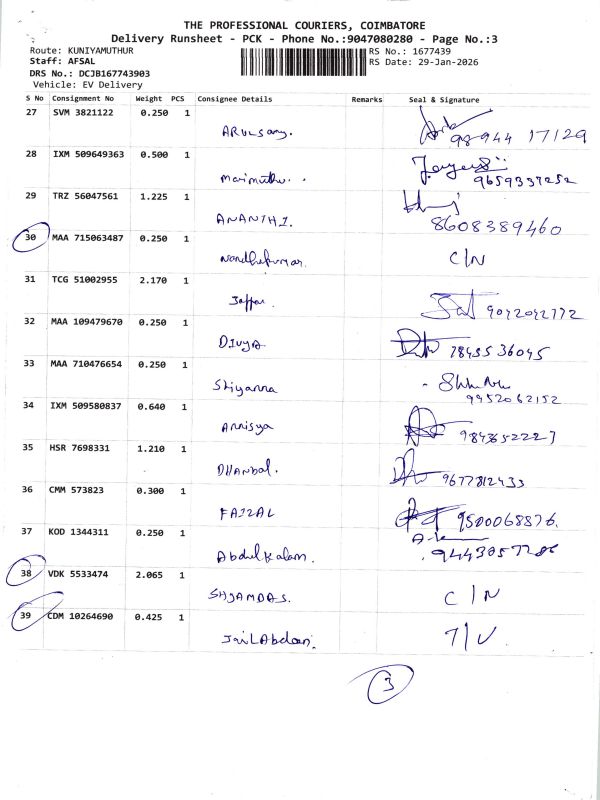 THE PROFESSIONAL COURIERS, COIMBATORE
Delivery Runsheet - PCK - Phone No.:9047080280 - Page No.:3
Route: KUNIYAMUTHUR
RS No.: 1677439
Staff: AFSAL
RS Date: 29-Jan-2026
DRS No.: DCJB167743903
Vehicle: EV Delivery
S No Consignment No Weight PCS Consignee Details Remarks Seal & Signature
27 SVM 3821122 0.250 1
ARULSamy. 98944 17129
28 IXM 509649363 0.500 1
Marimuthu. 9659337252
29 TRZ 56047561 1.225 1
ANANTHI. 8608389460
30 MAA 715063487 0.250 1
Nandhakumar. C/N
31 TCG 51002955 2.170 1
Jaffar
32 MAA 109479670 0.250 1
DIVYA 78455 36045
33 MAA 710476654 0.250 1
9952062152
34 IXM 509580837 0.640 1
35 HSR 7698331 1.210 1
DHANbal. 9677812433
36 CMM 573823 0.300 1
FAIZAL 9500068876.
37 KOD 1344311 0.250 1
AbdulKalam.
38 VDK 5533474 2.065 1
SHJAMDAS. C/N
39 CDM 10264690 0.425 1
3